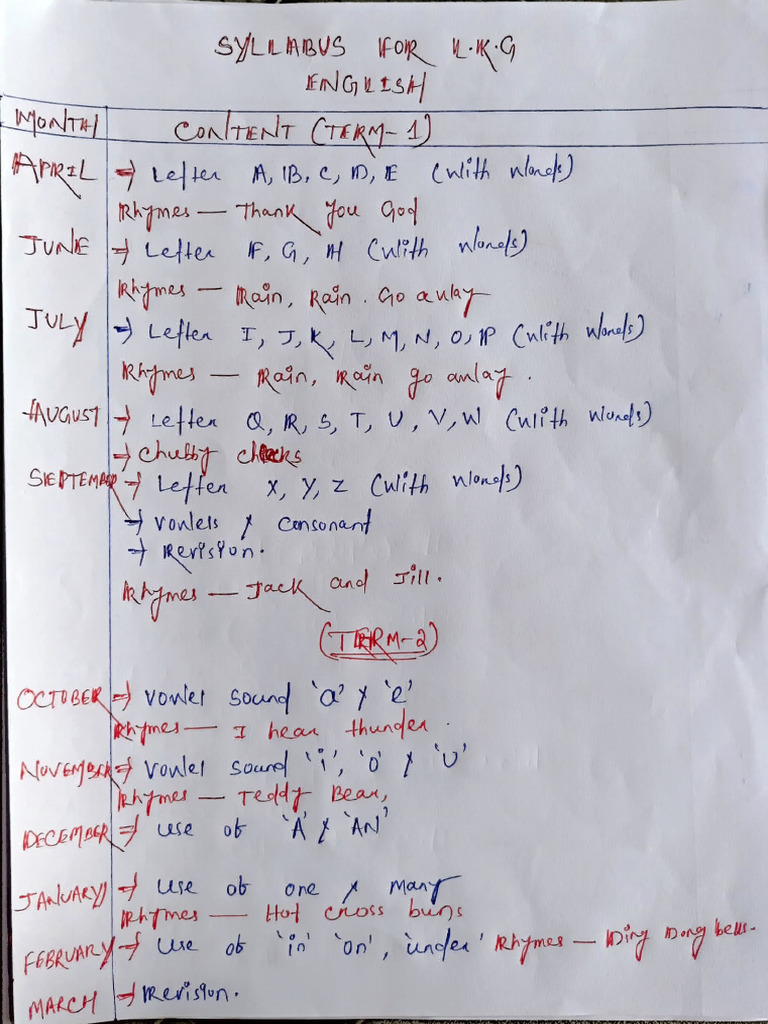 SYLLABUS FOR L.K.G
ENGLISH
MONTH CONTENT (TERM-1)
APRIL → Letter A, B, C, D, E (With Words)
Rhymes — Thank You God
JUNE → Letter F, G, H (With Words)
Rhymes — Rain, Rain. Go away
JULY → Letter I, J, K, L, M, N, O, P (With Words)
Rhymes — Rain, Rain go away.
AUGUST → Letter Q, R, S, T, U, V, W (With Words)
→ Chubby cheeks
SEPTEMBER → Letter X, Y, Z (With Words)
→ Vowels & Consonant
→ Revision.
Rhymes — Jack and Jill.
(TERM-2)
OCTOBER → Vowel Sound 'a' & 'e'
Rhymes — I hear thunder.
NOVEMBER → Vowel Sound 'i', 'o' & 'U'
Rhymes — Teddy Bear,
DECEMBER → Use of 'A' & 'AN'
JANUARY → Use of one & Many
Rhymes — Hot cross buns
FEBRUARY → Use of 'in' 'on', 'under' Rhymes — Ding Dong bells.
MARCH → Revision.